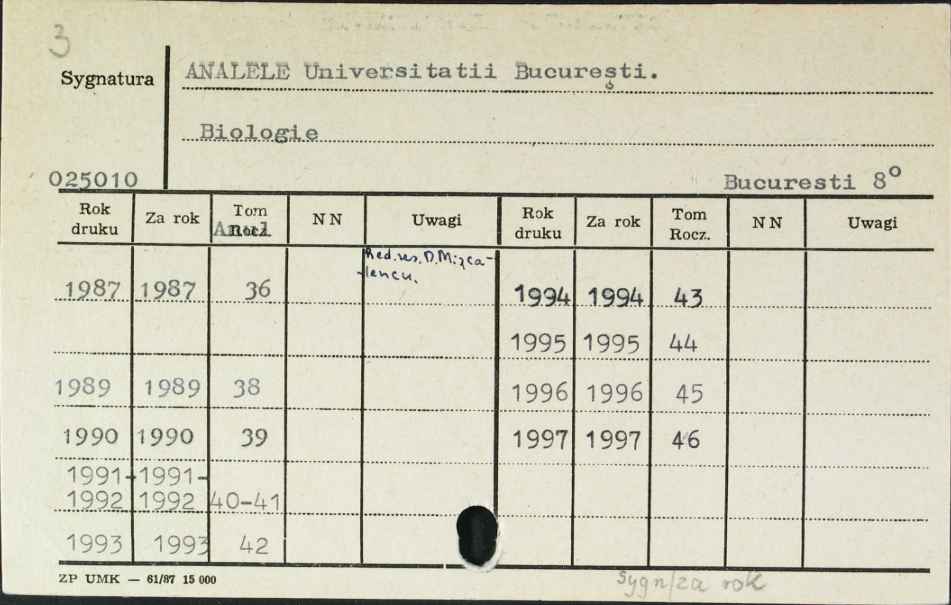 3
Sygnatura
ANALELE Universitatii București.
Biologie
025010
Bucuresti 8°
Rok druku Za rok Tom Rocz. NN Uwagi Rok druku Za rok Tom Rocz. NN Uwagi
Anul
Red. res. D. Mizca-
lencu.
1987 1987 36 1994 1994 43
1995 1995 44
1989 1989 38 1996 1996 45
1990 1990 39 1997 1997 46
1991- 1991-
1992 1992 40-41
1993 1993 42
ZP UMK — 61/87 15 000
Sygn/za rok